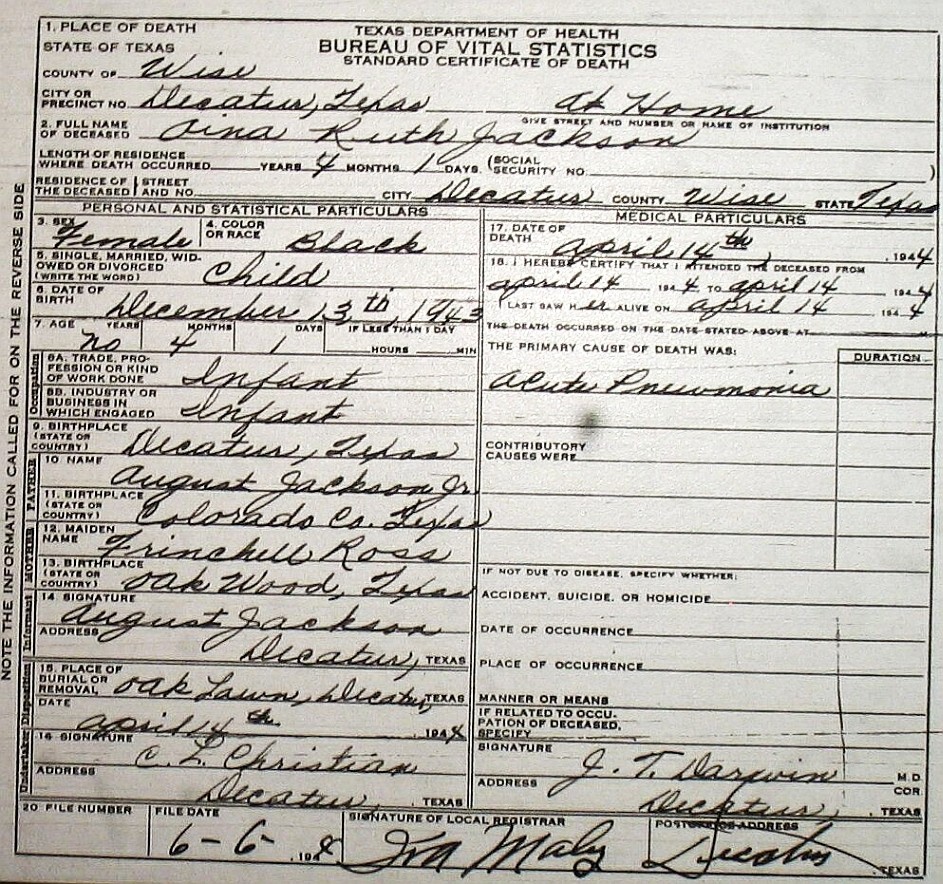 1. PLACE OF DEATH
TEXAS DEPARTMENT OF HEALTH
STATE OF TEXAS
BUREAU OF VITAL STATISTICS
STANDARD CERTIFICATE OF DEATH
COUNTY OF Wise
CITY OR PRECINCT NO. Decatur, Texas At Home
GIVE STREET AND NUMBER OR NAME OF INSTITUTION
2. FULL NAME OF DECEASED Oina Ruth Jackson
LENGTH OF RESIDENCE WHERE DEATH OCCURRED YEARS 4 MONTHS 1 DAYS. (SOCIAL SECURITY NO. )
RESIDENCE OF THE DECEASED STREET AND NO. CITY Decatur COUNTY Wise STATE Texas
NOTE THE INFORMATION CALLED FOR ON THE REVERSE SIDE
PERSONAL AND STATISTICAL PARTICULARS
3. SEX Female 4. COLOR OR RACE Black
5. SINGLE, MARRIED, WIDOWED OR DIVORCED (WRITE THE WORD) Child
6. DATE OF BIRTH December 13th, 1943
7. AGE YEARS no MONTHS 4 DAYS 1 IF LESS THAN 1 DAY HOURS MIN
Occupation
8A. TRADE, PROFESSION OR KIND OF WORK DONE Infant
8B. INDUSTRY OR BUSINESS IN WHICH ENGAGED Infant
9. BIRTHPLACE (STATE OR COUNTRY) Decatur, Texas
FATHER
10 NAME August Jackson Jr.
11. BIRTHPLACE (STATE OR COUNTRY) Colorado Co. Texas
MOTHER
12. MAIDEN NAME Frinchell Ross
13. BIRTHPLACE (STATE OR COUNTRY) Oak Wood, Texas
Informant
14 SIGNATURE August Jackson
ADDRESS Decatur, TEXAS
Disposition
15. PLACE OF BURIAL OR REMOVAL Oak Lawn, Decatur, TEXAS
DATE April 14th 1944
Undertaker
16 SIGNATURE C. L. Christian
ADDRESS Decatur, TEXAS
MEDICAL PARTICULARS
17. DATE OF DEATH April 14th, 1944
18. I HEREBY CERTIFY THAT I ATTENDED THE DECEASED FROM
April 14 1944 TO April 14 1944
I LAST SAW H er ALIVE ON April 14 1944
THE DEATH OCCURRED ON THE DATE STATED ABOVE AT
THE PRIMARY CAUSE OF DEATH WAS: DURATION
Acute Pneumonia
CONTRIBUTORY CAUSES WERE
IF NOT DUE TO DISEASE, SPECIFY WHETHER:
ACCIDENT, SUICIDE, OR HOMICIDE
DATE OF OCCURRENCE
PLACE OF OCCURRENCE
MANNER OR MEANS
IF RELATED TO OCCUPATION OF DECEASED, SPECIFY
SIGNATURE J. T. Darwin M.D. COR.
ADDRESS Decatur, TEXAS
20. FILE NUMBER FILE DATE 6-6, 1944 SIGNATURE OF LOCAL REGISTRAR Ira Maby POSTOFFICE ADDRESS Decatur, TEXAS